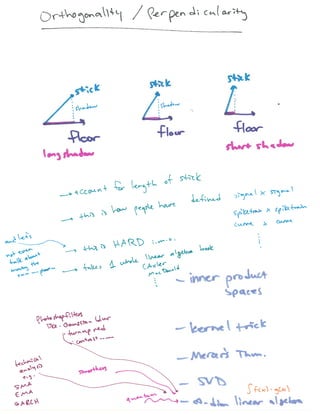 Orthogonality / Perpendicularity
stick
shadow
floor
long shadow
stick
shadow
floor
stick
floor
short shadow
→ account for length of stick
→ this is how people have defined
signal x signal
spiketrain x spiketrain
curve x curve
and let's
not even
talk about
→ this is HARD i.m.o.
→ takes 1 whole linear algebra book
- inner product
spaces
- kernel trick
- Mercer's Thm.
- SVD
- ∞-dim linear algebra
Photoshop filters
Gaussian blur
contrast
technical
analysis
e.g.
SMA
EMA
GARCH
smoothers
quantum